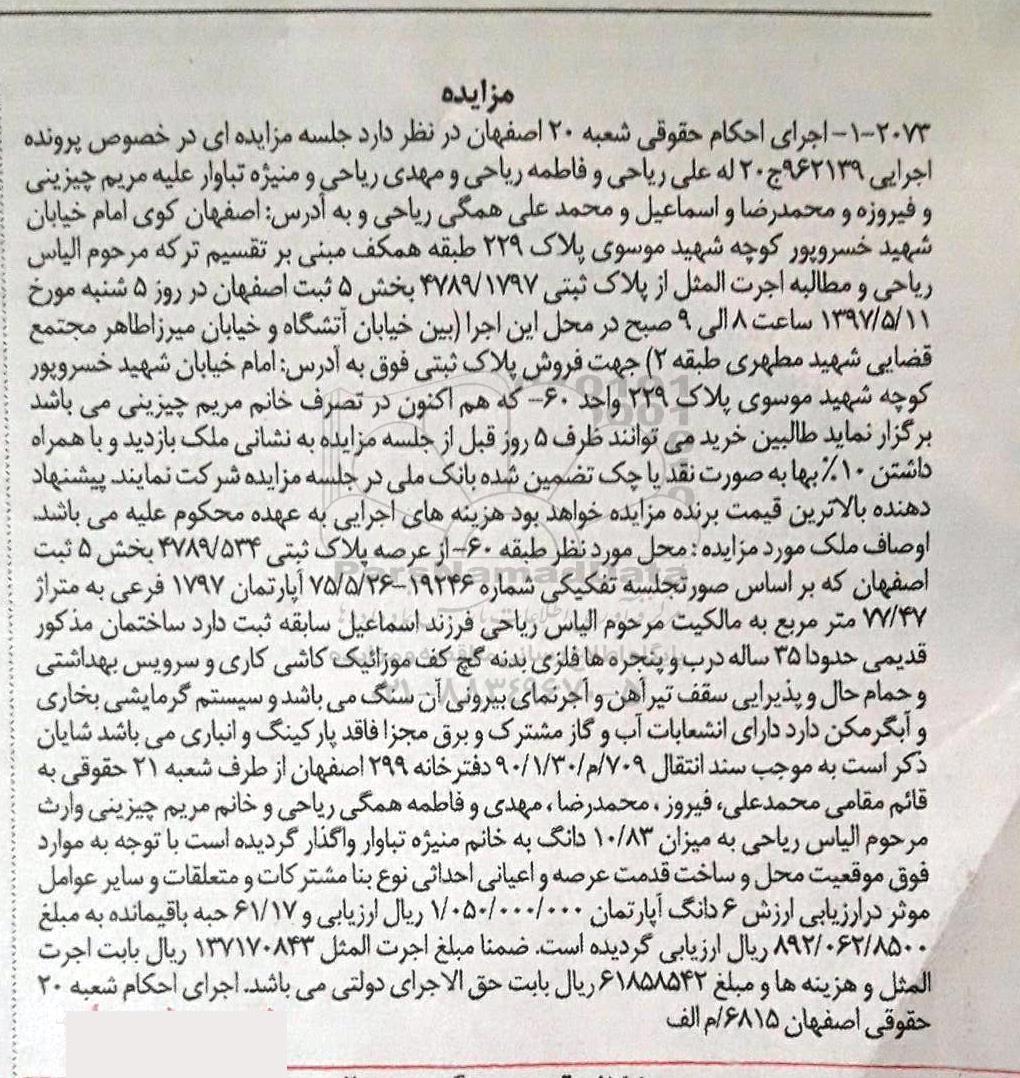 مزایده
۲۰۷۳-۱- اجرای احکام حقوقی شعبه ۲۰ اصفهان در نظر دارد جلسه مزایده ای در خصوص پرونده
اجرایی ۹۶۲۱۳۹ج۲۰ له علی ریاحی و فاطمه ریاحی و مهدی ریاحی و منیژه تباوار علیه مریم چیزینی
و فیروزه و محمدرضا و اسماعیل و محمد علی همگی ریاحی و به آدرس: اصفهان کوی امام خیابان
شهید خسروپور کوچه شهید موسوی پلاک ۲۲۹ طبقه همکف مبنی بر تقسیم ترکه مرحوم الیاس
ریاحی و مطالبه اجرت المثل از پلاک ثبتی ۴۷۸۹/۱۷۹۷ بخش ۵ ثبت اصفهان در روز ۵ شنبه مورخ
۱۳۹۷/۵/۱۱ ساعت ۸ الی ۹ صبح در محل این اجرا (بین خیابان آتشگاه و خیابان میرزاطاهر مجتمع
قضایی شهید مطهری طبقه ۲) جهت فروش پلاک ثبتی فوق به آدرس: امام خیابان شهید خسروپور
کوچه شهید موسوی پلاک ۲۲۹ واحد ۶۰- که هم اکنون در تصرف خانم مریم چیزینی می باشد
برگزار نماید طالبین خرید می توانند ظرف ۵ روز قبل از جلسه مزایده به نشانی ملک بازدید و با همراه
داشتن ۱۰٪ بها به صورت نقد یا چک تضمین شده بانک ملی در جلسه مزایده شرکت نمایند. پیشنهاد
دهنده بالاترین قیمت برنده مزایده خواهد بود هزینه های اجرایی به عهده محکوم علیه می باشد.
اوصاف ملک مورد مزایده : محل مورد نظر طبقه ۶۰- از عرصه پلاک ثبتی ۴۷۸۹/۵۳۴ بخش ۵ ثبت
اصفهان که بر اساس صورتجلسه تفکیکی شماره ۱۹۲۴۶-۷۵/۵/۲۶ آپارتمان ۱۷۹۷ فرعی به متراژ
۷۷/۴۷ متر مربع به مالکیت مرحوم الیاس ریاحی فرزند اسماعیل سابقه ثبت دارد ساختمان مذکور
قدیمی حدودا ۳۵ ساله درب و پنجره ها فلزی بدنه گچ کف موزائیک کاشی کاری و سرویس بهداشتی
و حمام حال و پذیرایی سقف تیرآهن و آجرنمای بیرونی آن سنگ می باشد و سیستم گرمایشی بخاری
و آبگرمکن دارد دارای انشعابات آب و گاز مشترک و برق مجزا فاقد پارکینگ و انباری می باشد شایان
ذکر است به موجب سند انتقال ۷۰۹/م/۹۰/۱/۳۰ دفترخانه ۲۹۹ اصفهان از طرف شعبه ۲۱ حقوقی به
قائم مقامی محمدعلی، فیروز ، محمدرضا ، مهدی و فاطمه همگی ریاحی و خانم مریم چیزینی وارث
مرحوم الیاس ریاحی به میزان ۱۰/۸۳ دانگ به خانم منیژه تباوار واگذار گردیده است با توجه به موارد
فوق موقعیت محل و ساخت قدمت عرصه و اعیانی احداثی نوع بنا مشترکات و متعلقات و سایر عوامل
موثر در ارزیابی ارزش ۶ دانگ آپارتمان ۱/۰۵۰/۰۰۰/۰۰۰ ریال ارزیابی و ۶۱/۱۷ حبه باقیمانده به مبلغ
۸۹۲/۰۶۲/۸۵۰۰ ریال ارزیابی گردیده است. ضمنا مبلغ اجرت المثل ۱۳۷۱۷۰۸۴۳ ریال بابت اجرت
المثل و هزینه ها و مبلغ ۶۱۸۵۸۵۴۲ ریال بابت حق الاجرای دولتی می باشد. اجرای احکام شعبه ۲۰
حقوقی اصفهان ۶۸۱۵/م الف
ParsNamadData